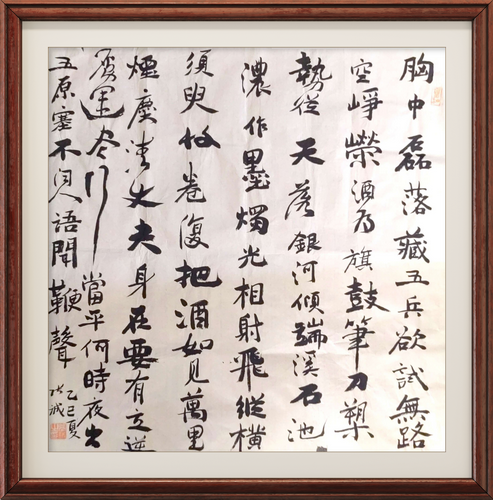 胸中磊落藏五兵欲試無路
空崢榮酒为旗鼓筆刀槊
勢從天落銀河傾端溪石池
濃作墨燭光相射飛縱橫
須臾收卷復把酒如见萬里
煙塵清丈夫身在要有立逆
虜運尽行當平何時夜出
五原塞不闻人語聞鞭聲
乙巳夏